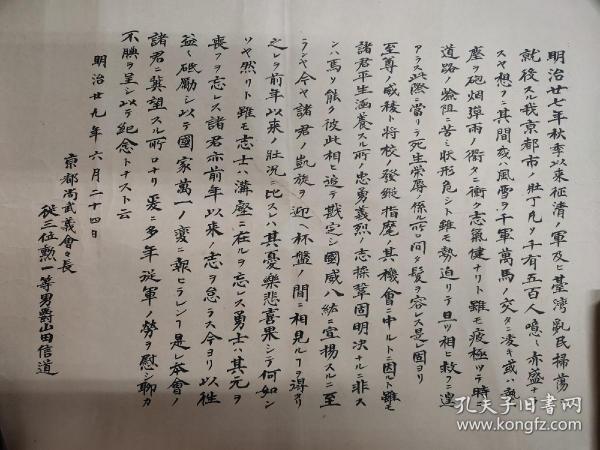 明治廿七年秋季以來征清ノ軍及ヒ臺灣亂民掃蕩
就役スル我京都市ノ壯丁凡ソ千有五百人噫亦盛ナ
スヤ想フニ其間或ハ風雪ヲ千軍萬馬ノ交タニ凌キ或ハ
塵ヲ砲烟彈雨ノ衢ニ衝ク志氣健ナリト雖モ疲極ツテ時
道路ノ險阻ニ苦シ状形危シト雖モ勢迫リテ且ツ相ヒ救フニ遑
アラス此際ニ當リテ死生榮辱ノ係ル所ロ間タ髮ヲ容レス是固ヨリ
至尊ノ威稜ト將校ノ發縱指麾ノ其機會ニ中ルトニ因ルト雖モ
諸君平生涵養スル所ノ忠勇義烈ノ志操鞏固明决ナルニ非ス
ンハ焉ソ能ク彼此相ヒ追テ戡定シ國威ヲ八紘ニ宣揚スルニ至
ランヤ今ヤ諸君ノ凱旋ヲ迎ヘ杯盤ノ間ニ相見ルヿヲ得タリ
之レヲ前年以來ノ壯况ニ比スレハ其憂樂悲喜果シテ何如ン
ソヤ然リト雖モ志士ハ溝壑ニ在ルヲ忘レス勇士ハ其元ヲ
喪フヲ忘レス諸君亦前年以來ノ志ヲ怠ラス今ヨリ以往
益〻砥勵シ以テ國家萬一ノ變ニ報ヒラレンヿ是レ本會ノ
諸君ニ冀望スル所ロナリ爰ニ多年從軍ノ勞ヲ慰シ聊カ
不腆ヲ呈シ以テ紀念トナスト云
明治廿九年六月二十四日
京都尚武義會々長
從三位勲一等男爵山田信道
孔夫子旧书网
www.kongfz.com